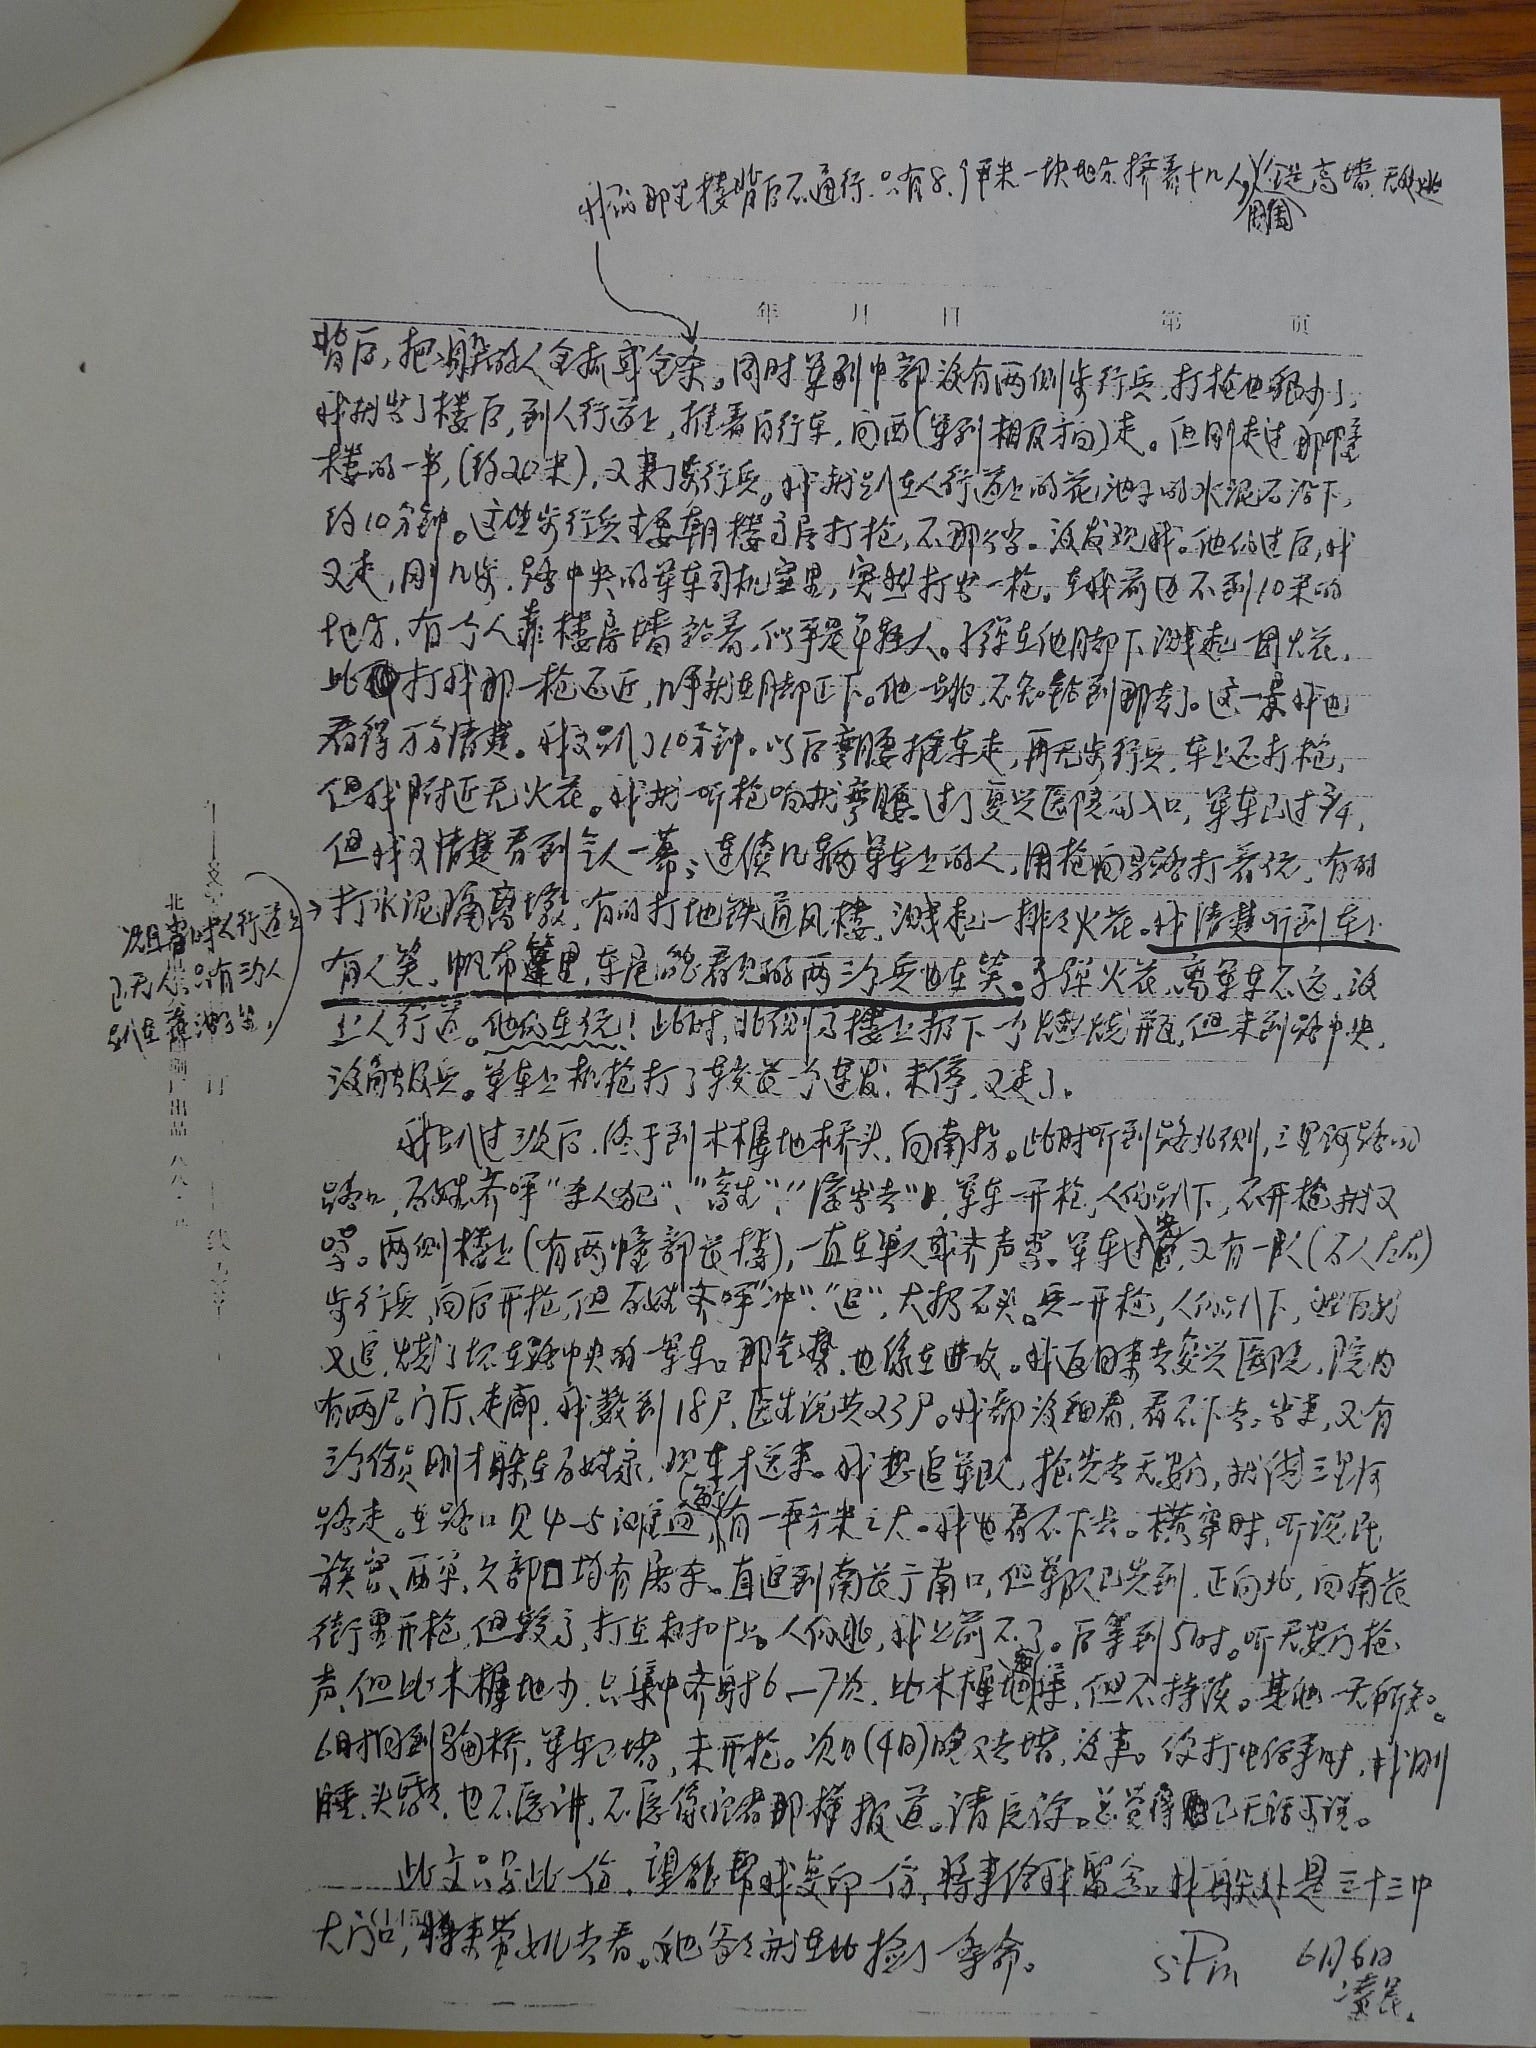 我们那里楼背后不通行,只有8、9平米一块地方挤着十几人,
周围是高墙,无处逃
年 月 日 第 页
背后,把躲的人全抓或全杀。同时军到中部没有两侧步行兵,打枪也较少了,
我就出了楼后,到人行道上,推着自行车,向西(军列相反方向)走。但刚走过那幢
楼的一半,(约20米),又来了步行兵。我就趴在人行道上的花池子的水泥石沿下,
约10分钟。这些步行兵主要朝楼房打枪,不那么密。没发现我。他们过后,我
又走,刚几步,路中央的军车司机室里,突然打出一枪。在我前边不到10米的
地方,有个人靠楼房墙站着,似乎是年轻人。子弹在他脚下溅起一团火花,
比打我那一枪还近,几乎就在脚正下。他一跳,不知躲到那去了。这一景我也
看得万分清楚。我又趴了10分钟。以后弯腰推车走,再无步行兵,车上还打枪,
但我附近无火花。我就一听枪响就弯腰。过了复兴医院的入口,军车已过3/4,
但我又清楚看到令人一幕:连续几辆军车上的人,用枪向马路打着玩,有的
打水泥隔离墩,有的打地铁通风楼,溅起一排排火花。我清楚听到车上
有人笑,帆布篷里,车尾能看见的两三个兵也在笑。子弹火花,离军车不远,没
上人行道。他们在玩!此时,北侧了楼上扔下一个燃烧瓶,但未到路中央,
没触及兵。军车上机枪打了较长一个连发,未停,又走了。
况且当时人行道上
已无人,只有三个人
趴在花池子沿,
北
厂出品 八八·
订 线
我趴过三次后,终于到木樨地桥头,向南拐。此时听到路北侧,三里河路的
路口,百姓齐呼“杀人犯”、“畜生”、“滚出去”,军车一开枪,人们趴下,不开枪就又
喊。两侧楼上(有两幢部长楼),一直在单人或齐声骂。军车过完,又有一队(百人左右)
步行兵,向后开枪,但百姓齐呼“冲”、“追”,大扔石头。兵一开枪,人们趴下,然后就
又追,烧了坏在路中央的一军车。那气势,也像在进攻。我返回来去复兴医院,院内
有两尸。门厅、走廊,我数到18尸,医生说共23尸。我都没细看,看不下去。出来,又有
三个伤员刚才躲在百姓家,现在才送来。我想追军队,抢先去天安门,就借三里河
路走。在路口见4-5滩血,有一平方米之大。我也看不下去。横穿时,听说民
族宫、西单、六部口均有屠杀。直追到南长街南口,但军队已先到,正向北,向南长
街里开枪,但较高,打在树叶上。人们逃,我上前不了。后等到5时。听天安门枪
声,但比木樨地少,只集中齐射6—7次,比木樨地密集,但不持续。其他一无所知。
6时回到骑桥,军车已堵,未开枪。次日(4日)晚又去堵,没事。你打电话来时,我刚
睡,头昏,也不愿讲,不愿像记者那样报道。请原谅。总觉得自己无话可说。
此文只写此一份,望能帮我复印一份,将来给我留念。我躲处是三十三中
大门口,将来带女儿去看。她爸爸就在此捡了条命。
5Pm 6月6日
凌晨.